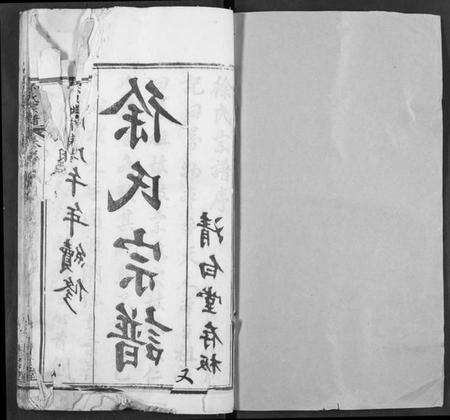 午年續修
徐氏宗譜
清白堂存板
又